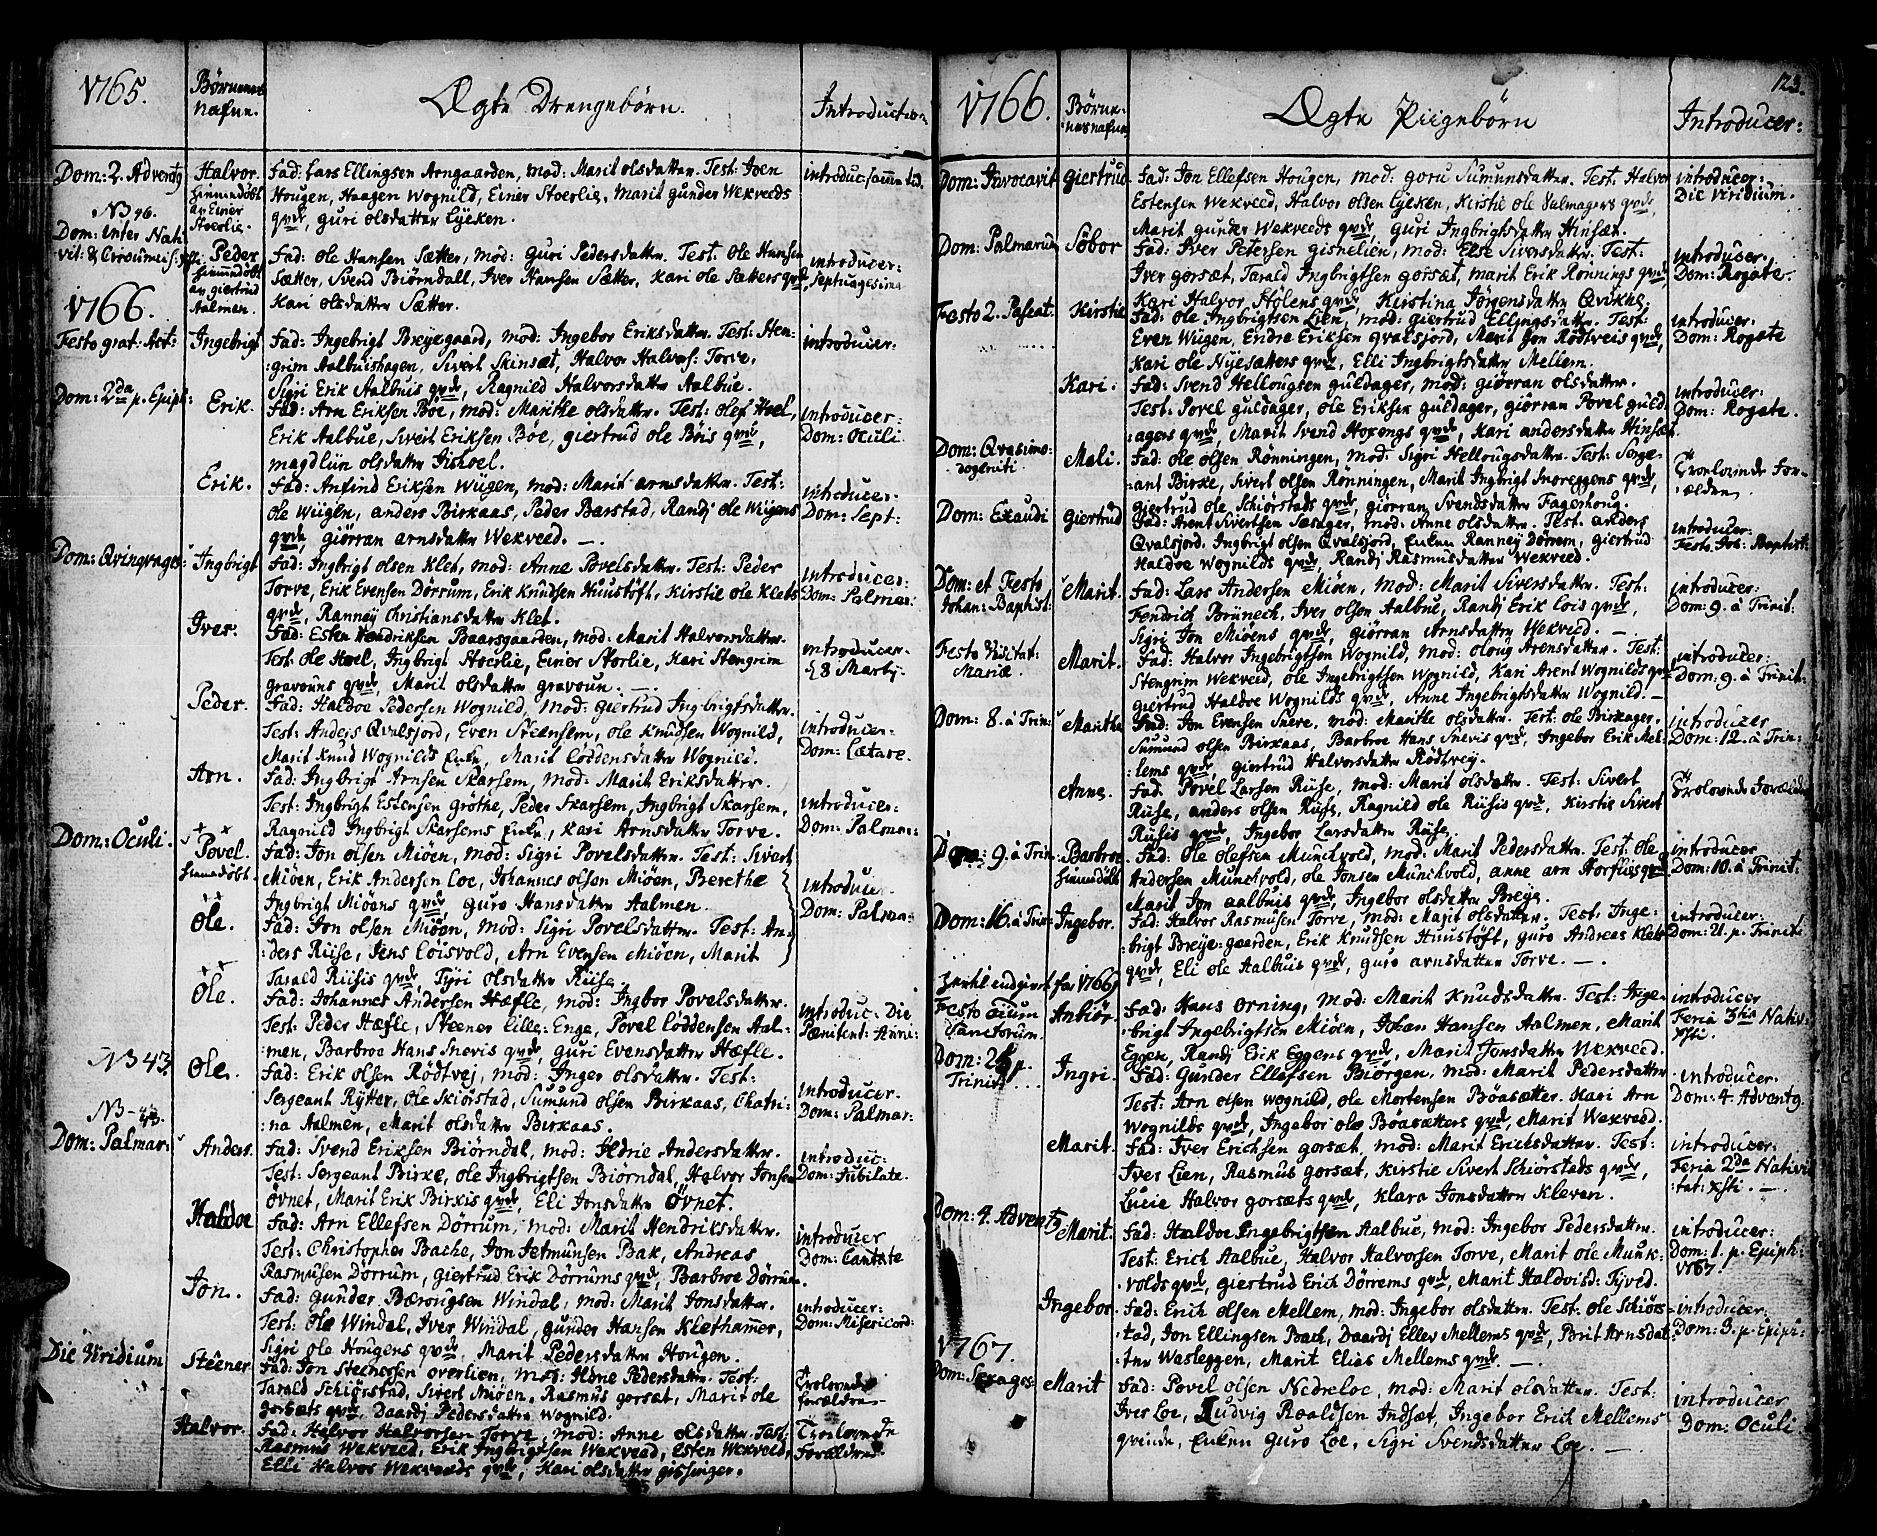 1765.
Børnenes
nafne.
Ægte Drengebørn.
Introduction
Dom: 2. Advent9
Halvor
hiemedøbt
av Einer
Stoerlie.
Fad: Lars Ellingsen Arngaarden, mod: Marit olsdatter. Test: Joen
Hougen, Haagen Wognild, Einer Stoerlie, Marit Gunder Wekveeds
qvde, guri olsdatter Lyeken.
Dom: inter Nati-
vit: & Circumcis:
Peder
hiemedøbt
av giertrud
Aalmen.
Fad: Ole Hansen Sætter, mod: Guri Pedersdatter. Test: Ole Hansen
Sætter, Svend Biørndall, Iver Hansen Sætter, Kari ole Sætters qvde,
Kari olsdatter Sætter.
introducer:
septuagesima
1766.
Festo grat: Act:
Ingebrigt
Fad: Ingebrigt Breyegaard, mod: Ingebor Eriksdatter. Test: Sten-
grim Aalbuishagen, Sivert Skinsæt, Halvor Halvors: Torve,
Sigri Erik Aalbuis qvde, Ragnild Halvorsdatter Aalbue.
introducer:
Dom: 2da p. Epiph:
Erik.
Fad: Arn Eriksen Böe, mod: Marithe olsdatter. Test: olef Hoel,
Erik Aalbue, Sivert Eriksen Bøe, giertrud ole Böis qvde,
magdliin olsdatter
introducer:
Dom: Oculi.
Erik.
Fad: Anfind Eriksen Wügen, mod: Marit arnsdatter. Test:
ole Wügen, anders Birkaas, Peder Barstad, Randj ole Wügens
qvde, giörran arnsdatter Wekveed. —.
introducer:
Dom: Sept:
Dom: Qvinqvages:
Ingbrigt
Fad: Ingbrigt olsen Klet, mod: Anne Povelsdatter. Test: Peder
Torve, Erik Evensen Dörrum, Erik Knudsen Huustöft, Kirstie ole Klets
qvde, Ranney Christiansdatter Klet.
introducer:
Dom: Palmar:
Iver.
Fad: Esten Hendriksen Baarsgaarden, mod: Marit Halvorsdatter.
Test: ole Hoel, Ingbrigt Stoerlie, Einer Storlie, Kari Stengrim
gravouns qvde, Marit olsdatter gravoun. —.
introducer:
8 Martj.
Peder.
Fad: Haldoe Pedersen Wognild, mod: Giertrud Ingbrigtsdatter.
Test: Anders Qvalsjord, Even Steensem, ole Knudsen Wognild,
Marit Knud Wognilds Enke, Marit Loddensdatter Wognild.
introducer:
Dom: Lætare.
Arn.
Fad: Ingbrigt Arnsen Skarsem, mod: Marit Eriksdatter.
Test: Ingbrigt Estensen Gröthe, Peder Skarsem, Ingbrigt Skarsem,
Ragnild Ingbrigt Skarsems Enke, Kari Arnsdatter Torve.
introducer:
Dom: Palmar:
Dom: Oculi.
Povel.
hiemedöbt.
Fad: Jon olsen Miöen, mod: Sigri Povelsdatter. Test: Sivert
Miöen, Erik Andersen Loe, Johannes olsen Miöen, Berethe
Ingbrigt Miöens qvde, Guro Hansdatter Aalmen.
introducer
Dom: Palmar:
Ole.
Fad: Jon olsen Miöen, mod: Sigri Povelsdatter. Test: An-
:ders Riise, Jens Loisvold, Arn Evensen Miöen, Marit
Tarald Riisis qvde, Tyri olsdatter Riise.
Ole.
Fad: Johannes Andersen Hæfle, mod: Ingbor Povelsdatter.
Test: Peder Hæfle, Steener Lille-Enge, Povel Loddensen Aal-
:men, Barbroe Hans Snevis qvde, Guri Evensdatter Hæfle.
introduc: Die
Pœnitent:
N3 43.
Ole.
Fad: Erik olsen Rödtvej, mod: Inger olsdatter. Test:
Sergeant Rytter, Ole Skiörstad, Sumund olsen Birkaas, Chatri-
:na Aalmen, Marit olsdatter Birkaas.
introducer.
Dom: Palmar:
Dom: Palmar:
Anders.
Fad: Svend Eriksen Biörndal, mod: Ildrie Andersdatter.
Test: Sergeant Birke, Ole Ingbrigtsen Biörndal, Halvor Jonsen
Övnet, Marit Erik Birkis qvde, Eli Jonsdatter Övnet.
introduc:
Dom: Jubilate.
Haldoe
Fad: Arn Ellefsen Dörrum, mod: Marit Hendriksdatter.
Test: Christopher Bache, Jon Jetmunsen Bak, Andreas
Rasmusen Dörrum, Giertrud Erik Dörrums qvde, Barbroe Dörrum.
introducer
Dom: Cantate
Jon.
Fad: Gunder Bærougsen Windal, mod: Marit Jonsdatter.
Test: Ole Windal, Iver Windal, gunder Hansen Klethammer,
Sigri ole Hougens qvde, Marit Pedersdatter Hougen.
introducer:
Dom: Misericord:
Die Viridium
Steener
Fad: Jon Steenersen overlien, mod: Ildrie Pedersdatter. Test:
Tarald Schiörstad, Sivert Miöen, Rasmus gorsæt, Marit ole
gorsæts qvde, Daardj Pedersdatter Wognild.
Trolovede
forældre.
Halvor.
Fad: Halvor Halvorsen Torve, mod: Anne olsdatter. Test:
Rasmus Wekveed, Erik Ingbrigtsen Wekveed, Esten Wekveed,
Elli Halvor Wekveeds qvde, Kari olsdatter gissinger.
Trolovede
Forældre
1766.
Børne-
nes nafne
Ægte Piigebörn
Introducer:
123.
Dom: Invocavit
Giertrud
Fad: Jon Ellefsen Hougen, mod: Goru Sumunsdatter. Test: Halvor
Estensen Wekveed, Halvor olsen Lyeken, Kirstie ole Valmagers qvde,
Marit gunder Wekveeds qvde, Guri Ingbrigtsdatter Hinsæt.
introducer:
Die Viridium.
Dom: Palmarum
Söbor
Fad: Iver Petersen Gisnelien, mod: Else Siversdatter. Test:
Iver gorsæt, Tarald Ingbrigtsen gorsæt, Marit Erik Rönnings qvde
Kari Halvor Stölens qvde, Kirstina Jörgensdatter Qvikne.
introducer:
Dom: Rogate.
Festo 2. Paschat.
Kirstie
Fad: Ole Ingbrigtsen Lien, mod: Giertrud Ellingsdatter. Test:
Even Wügen, Endre Eriksen Qvalsjord, Marit Jon Rödtveis qvde,
Kari ole Nyesætters qvde, Elli Ingbrigtsdatter Mellem.
introducer:
Dom: Rogate
Kari.
Fad: Svend Hellougsen Guldager, mod: Giörran olsdatter.
Test: Povel Guldager, ole Eriksen Guldager, Giörran Povel Guld
:agers qvde, Marit Svend Hoxengs qvde, Kari andersdatter Hinsæt.
introducer:
Dom: Rogate.
Dom: Qvasimo-
dogeniti.
Mali.
Fad: Ole olsen Rönningen, mod: Sigri Hellougsdatter. Test: Serge-
:ant Birke, Sivert olsen Rönningen, Marit Ingbrigt Snoreggens qvde,
Giertrud ole Schiörstads qvde, giörran Svendsdatter Fagerhoug.
Trolovede For-
ældre.
Dom: Exaudi
Giertrud
Fad: Arent Sivertsen Sæsager, mod: Anne olsdatter. Test: anders
Qvalsjord, Ingbrigt olsen Qvalsjord, Enken Ranney Dörrem, Giertrud
Haldoe Wognilds qvde, Randj Rasmusdatter Wekveed.
introducer:
Festo Joh: Baptist:
Dom: et Festo
Johan: Baptist:
Marit.
Fad: Lars Andersen Miöen, mod: Marit Siversdatter. Test:
Fendrich Brünech, Iver olsen Aalbue, Randj Erik Lois qvde,
Sigri Jon Miöens qvde, giörran Arnsdatter Wekveed. —
introducer:
Dom: 9. à Trinit:
Festo Visitat:
Mariæ.
Marit.
Fad: Halvor Ingebrigtsen Wognild, mod: oloug Arensdatter. Test:
Stengrim Wekveed, ole Ingebrigtsen Wognild, Kari Arent Wognilds qvde
Giertrud Haldoe Wognilds qvde, Anne Ingebrigtsdatter Wognild. —
introducer:
Dom: 9. à Trinit:
Dom: 8. à Trin:
Marithe
Fad: Jon Evensen Snere, mod: Marithe olsdatter. Test: ole Birkager,
Sumund olsen Birkaas, Barbroe Hans Snevis qvde, Ingebor Erik Mel-
:lems qvde, Giertrud Halvorsdatter Rödtvej.
introducer
Dom: 12. à Trin:
Anne.
Fad: Povel Larsen Riise, mod: Marit olsdatter. Test: Sivert
Riise, anders olsen Riise, Ragnild ole Riisis qvde, Kirstie Sivert
Riisis qvde, Ingebor Larsdatter Riise.
Trolovede Forældre
Dom: 9. à Trin
Barbroe
hiemedöbt
Fad: Ole Olefsen Munchvold, mod: Marit Pedersdatter. Test: Ole
Andersen Munchvold, ole Jonsen Munchvold, anne arn Horfliis qvde
Marit Jon aalbuis qvde, Ingebor olsdatter Breye.
introducer
Dom: 10. à Trinit:
Dom: 16. à Trin:
Ingebor.
Fad: Halvor Rasmusen Torve, mod: Marit olsdatter. Test: Inge-
:brigt Breye:gaarden, Erik Knudsen Huustöft, guro Andreas Klets
qvde, Eli ole Aalbuis qvde, guro arnsdatter Torve. —.
introducer:
Dom: 21. p. Trinit:
for 1766
Festo oium
Sanctorum.
Anbiör.
Fad: Hans Orning, mod: Marit Knudsdatter. Test: Inge-
:brigt Ingebrigtsen Miöen, Johan Hansen Aalmen, Marit
Eggen, Randj Erik Eggens qvde, Marit Jonsdatter Wekveed.
introducer
Feria 3tia Nativ:
Xsti.
Dom: p.
Trinit
Ingri.
Fad: Gunder Ellefsen Biörgen, mod: Marit Pedersdatter
Test: Arn olsen Wognild, ole Mortensen Böasætter, Kari Arn
Wognilds qvde, Ingebor ole Böasætters qvde, Marit Wekveed.
introducer.
Dom: 4. Advent9.
Marit.
Fad: Iver Erichsen gorsæt, mod: Marit Ericksdatter. Test:
Iver Lien, Rasmus gorsæt, Kirstie Sivert Schiörstads qvde,
Lucie Halvor gorsæts qvde, Klara Jonsdatter Kleven.
introducer:
Feria 2da Nativi
:tat: Xsti. —.
Dom: 4. Advent9
Marit.
Fad: Haldoe Ingebrigtsen Aalbue, mod: Ingebor Pedersdatter.
Test: Erich Aalbue, Halvor Halvorsen Torve, Marit ole Munk-
:volds qvde, Giertrud Erich Dörrems qvde, Marit Haldoisd: Tyved.
introducer:
Dom: 1. p. Epiph:
1767.
Ingebor.
Fad: Erich olsen Mellem, mod: Ingebor olsdatter. Test: ole Schiörs-
:tad, Jon Ellingsen Bach, Daardj Ellev Mellems qvde, Brit Arnsdat-
:ter Wasleggen, Marit Elias Mellems qvde. —.
introducer:
Dom: 3. p. Epiph:
1767.
Dom: Sexages:
Marit
Fad: Povel olsen Nedreloe, mod: Marit olsdatter. Test:
Iver Loe, Ludvig Roaldsen Indsæt, Ingebor Erich Mellems
qvinde, Enken Guro Loe, Sigri Svendsdatter Loe. —.
introducer
Dom: Oculi.